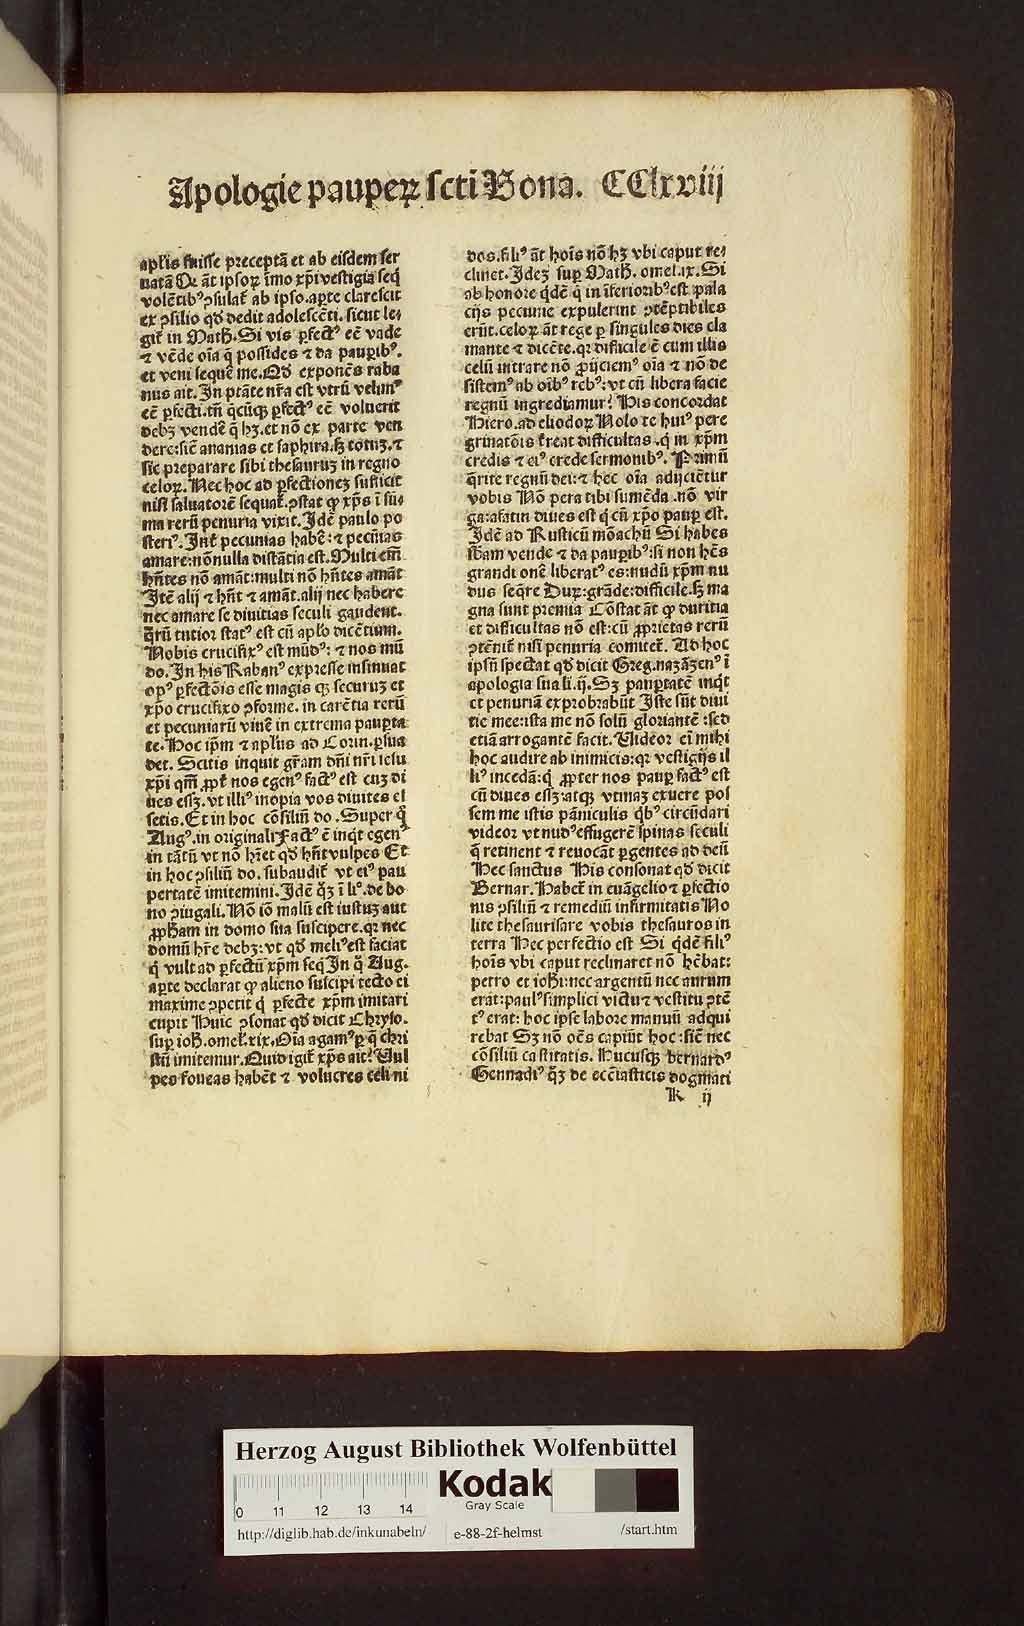 Apologie pauperꝝ scti Bona. CClxviij
apl̓is fuisse preceptā et ab eisdem ser
uatā Qƺ āt ipsoꝝ īmo xp̄i vestigia seq̄
volētibꝰ ↄsulat̉ ab ipso. aꝑte clarescit
ex ↄsilio qd̓ dedit adolescēti. sicut le⸗
git̉ in Math̓. Si vis ꝑfectꝰ eē vade
⁊ vēde oīa q̄ possides ⁊ da pauꝑibꝰ.
et veni sequē me. Qd̓ exponēs raba
nus ait. In ptāte nr̄a est vtrū velimꝰ
eē ꝑfecti. tn̄ q̄cūqꝫ ꝑfectꝰ eē voluerit
debꝫ vendē q̄ hꝫ. et nō ex parte ven
dere: sic̄ ananias et saphira. sꝫ totuꝫ. ⁊
sic preparare sibi thesauruꝫ in regno
celoꝝ. Nec hoc ad ꝑfectioneꝫ sufficit
nisi saluatorē sequat̉. ↄstat ꝙ xp̄s ī sū⸗
ma rerū penuria vixit. Idē paulo po
steriꝰ. Int̉ pecunias habē: ⁊ pecūias
amare: nōnulla distātia est. Multi em̄
hn̄tes nō amāt: multi nō hn̄tes amāt
Itē alij ⁊ hn̄t ⁊ amāt. alij nec habere
nec amare se diuitias seculi gaudent.
q̄rū tutior statꝰ est cū apl̓o dicētium.
Nobis crucifixꝰ est mūdꝰ: ⁊ nos mū
do. In his Rabanꝰ expresse insinuat
opꝰ ꝑfectōis esse magis qꝫ securuꝫ et
xp̄o crucifixo ↄforme. in carētia rerū
et pecuniarū viuē in extrema pauꝑta
te. Hoc ip̄m ⁊ apl̓us ad Corin. ꝑsua
det. Scitis inquit gr̄am dn̄i nr̄i iesu
xp̄i qm̄ ꝓpt̉ nos egenꝰ factꝰ est cuꝫ di
ues esꝫ. vt illiꝰ inopia vos diuites es
setis. Et in hoc cōsiliū do. Super q̄
Augꝰ. in originali Factꝰ ē inq̇t egenꝰ
in tātū vt nō hr̄et qd̓ hn̄t vulpes Et
in hoc ↄsiliū do. subaudit̉ vt eiꝰ pau
pertatē imitemini. Idē q̄ꝫ ī li°. de bo
no ↄiugali. Nō iō malū est iustuꝫ aut
ꝓph̓am in domo sua suscipere. qꝛ nec
domū hr̄e debꝫ: vt qd̓ meliꝰ est faciat
q̇ vult ad ꝑfectū xp̄m seq̄ In q̄ Aug.
aꝑte declarat ꝙ alieno suscipi tecto ei
maxime ↄpetit q̇ ꝑfecte xp̄m imitari
cupit Huic ↄsonat qd̓ dicit Chryso.
suꝑ ioh̓. omel̓. xix. Oīa agamꝰ ꝑ q̄ chri
stū imitemur. Quid igit̉ xp̄s ait? Uul
pes foueas habēt ⁊ volucres celi ni
dos. fil̓iꝰ āt hoīs nō hꝫ vbi caput re⸗
clinet. Ideꝫ suꝑ Math̓. omel. ix. Si
ab honore q̇dē q̇ in īferioribꝰ est pala
cijs pecunie expulerint ↄtēptibiles
erūt. celoꝝ āt rege ꝑ singulos dies cla
mante ⁊ dicēte. qꝛ difficile ē cum illis
celū intrare nō ꝓijciemꝰ oīa ⁊ nō de
sistemꝰ ab oībꝰ rebꝰ: vt cū libera facie
regnū ingrediamur? His concordat
Hiero. ad eliodoꝝ Nolo te huiꝰ pere
grinatōis t̉reat difficultas. q̇ in xp̄m
credis ⁊ eiꝰ crede sermonibꝰ. Primū
q̄rite regnū dei: ⁊ hec oīa adijcientur
vobis Nō pera tibi sumēda. nō vir
ga: afatin diues est q̇ cū xp̄o pauꝑ est.
Idē ad Rusticū mōachū Si habes
sb̄am vende ⁊ da pauꝑibꝰ: si non hēs
grandi onē liberatꝰ es: nudū xp̄m nu
dus seq̄re Duꝝ: grāde: difficile. sꝫ ma
gna sunt premia Cōstat āt ꝙ duritia
et difficultas nō est: cū ꝓprietas rerū
ↄtēnit̉ nisi penuria comitet̉. Ad hoc
ipsū spectat qd̓ dicit Greg. nazāzenꝰ ī
apologia sua li. ij. Sꝫ pauꝑtatē inq̇t
et penuriā exprobrabūt Iste sūt diui
tie mee: ista me nō solū gloriantē: sed
etiā arrogantē facit. Uideor ei̅ mihi
hoc audire ab inimicis: qꝛ vestigijs il
liꝰ incedā: q̇ ꝓpter nos pauꝑ factꝰ est
cū diues esꝫ: atqꝫ vtinaꝫ exuere pos
sem me istis pāniculis q̇bꝰ circūdari
videor vt nudꝰ effugerē spinas seculi
q̄ retinent ⁊ reuocāt ꝑgentes ad deū
Hec sanctus His consonat qd̓ dicit
Bernar. Habet̉ in euāgelio ⁊ ꝑfectio
nis ↄsiliū ⁊ remediū infirmitatis No
lite thesaurisare vobis thesauros in
terra Hec perfectio est Si q̇dē fil̓iꝰ
hoīs vbi caput reclinaret nō hēbat:
petro et ioh̓i: nec argentū nec aurum
erat: paulꝰ simplici victu ⁊ vestitu ↄtē
tꝰ erat: hoc ipse labore manuū adqui
rebat Sꝫ nō oēs capiūt hoc: sic̄ nec
cōsiliū castitatis. Hucusqꝫ bernardꝰ
Gennadiꝰ q̄ꝫ de ecc̄iasticis dogmati
K ij
Herzog August Bibliothek Wolfenbüttel
Kodak
Gray Scale
0 11 12 13 14
http://diglib.hab.de/inkunabeln/ e-88-2f-helmst /start.htm